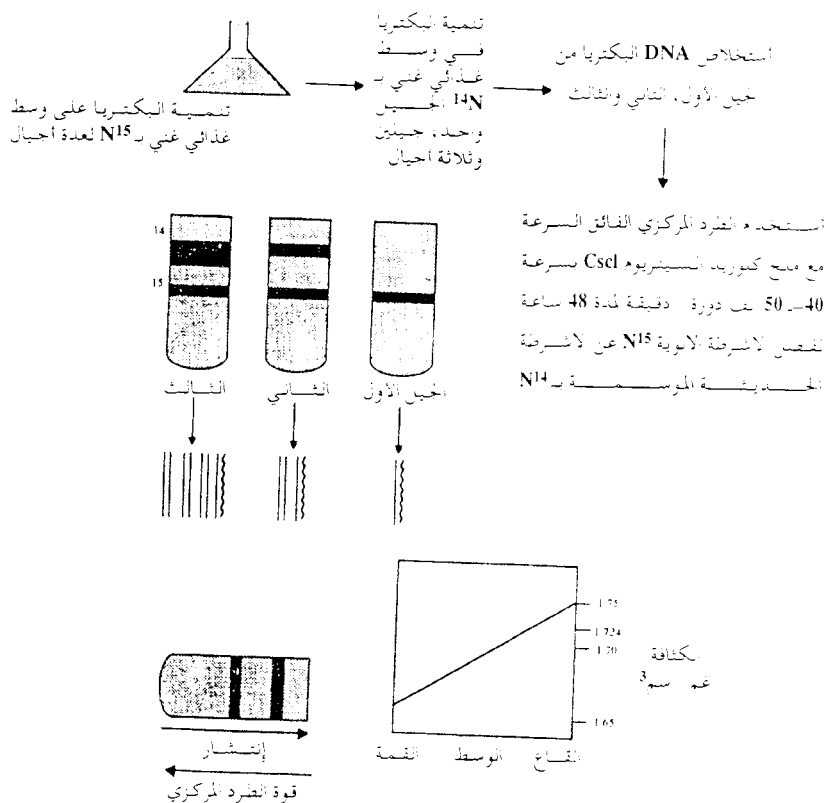 تنمية البكتريا على وسط
غذائي غني بـ N¹⁵ لعدة أجيال
تنمية البكتريا
في وسط
غذائي غني بـ
¹⁴N الجيل
واحد، جيلين
وثلاثة أجيال
استخلاص DNA البكتريا من
جيل الأول، الثاني والثالث
استخدم الطرد المركزي الفائق السرعة
مع ملح كلوريد السيزيوم Cscl بسرعة
40–50 ألف دورة دقيقة لمدة 48 ساعة
لفصل لاشرطة الابوية N¹⁵ عن لاشرطة
الحديثة الموسمة بـ N¹⁴
14
15
الجيل الأول
الثاني
الثالث
1.75
1.724
1.70
1.65
الكثافة
غم سم³
القاع
الوسط
القمة
إنتشار
قوة الطرد المركزي